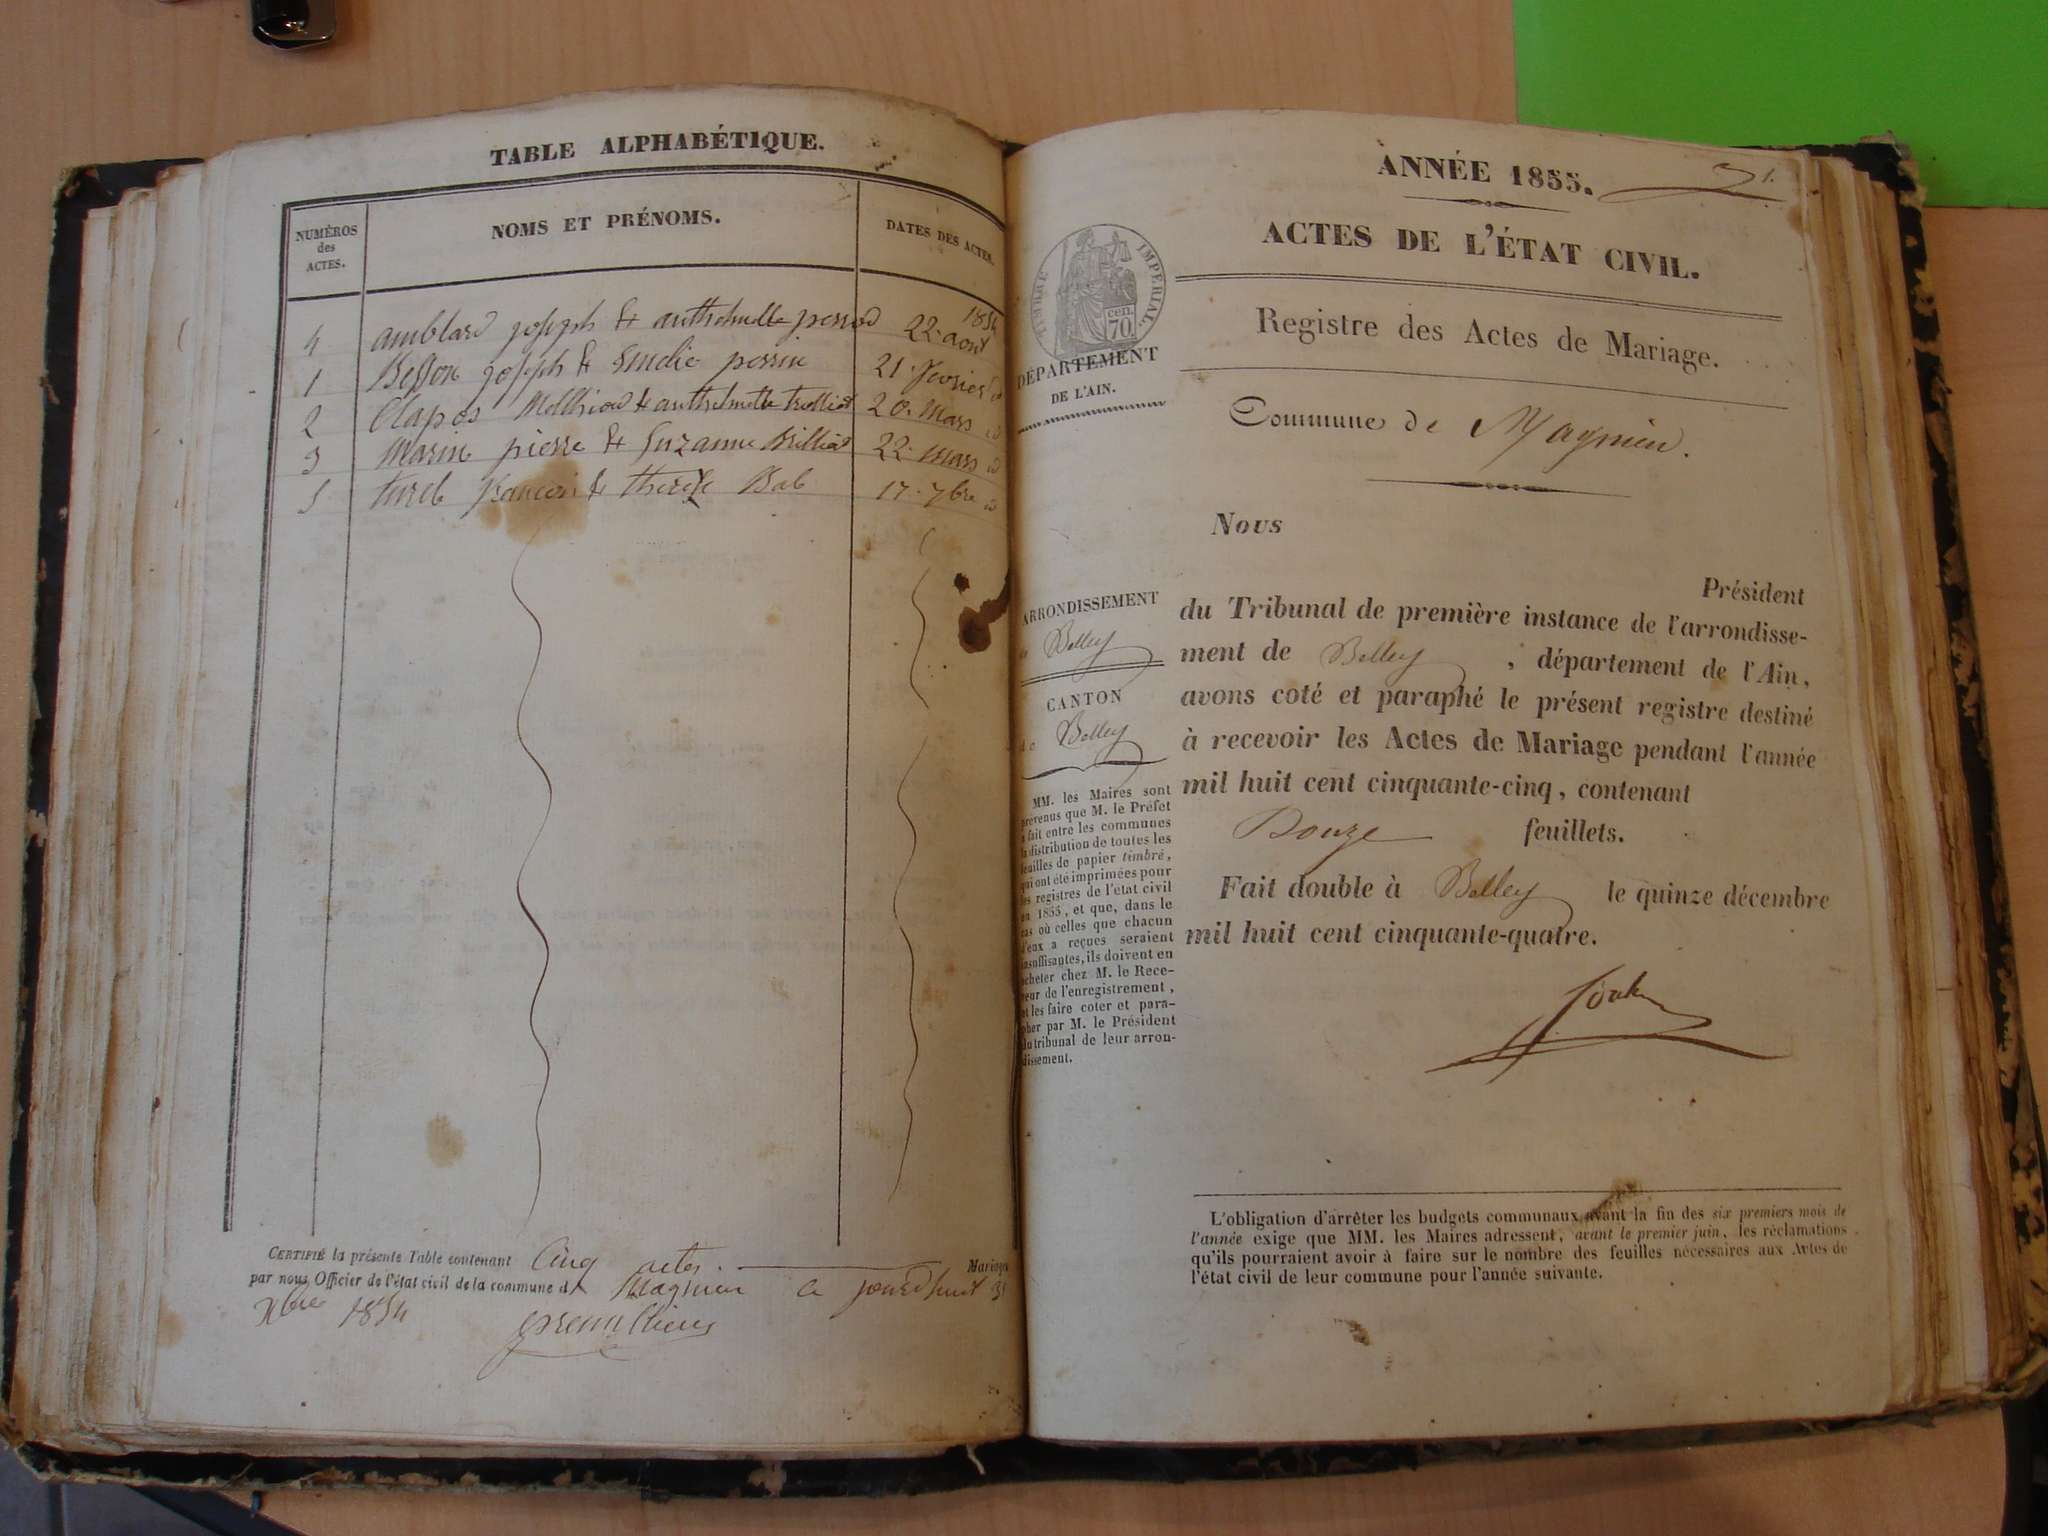 TABLE ALPHABÉTIQUE.
NUMÉROS
des
ACTES.
NOMS ET PRÉNOMS.
DATES DES ACTES.
1854
4 amblard joseph & anthelmette perrod 22 aout
1 Besson joseph & Emelie perrin 21 fevrier id
2 Clapos & anthelmette trolliet 20 mars id
3 Marin pierre & Suzanne Brilliat 22 mars id
5 francois & therese Bal 17 7bre id
CERTIFIÉ la présente Table contenant Cinq actes. Mariage
par nous Officier de l'état civil de la commune de Magnieu ce jourdhuit 31
Xbre 1854
ANNÉE 1855. 1.
ACTES DE L'ÉTAT CIVIL.
TIMBRE IMPERIAL.
cen.
70
DÉPARTEMENT
DE L'AIN.
Registre des Actes de Mariage.
Commune de Magnieu.
Nous
Président
du Tribunal de première instance de l'arrondisse-
ment de Belley, département de l'Ain,
avons coté et paraphé le présent registre destiné
à recevoir les Actes de Mariage pendant l'année
mil huit cent cinquante-cinq, contenant
Douze feuillets.
Fait double à Belley le quinze décembre
mil huit cent cinquante-quatre.
ARRONDISSEMENT
de Belley
CANTON
de Belley
MM. les Maires sont
prévenus que M. le Préfet
a fait entre les communes
la distribution de toutes les
feuilles de papier timbré,
qui ont été imprimées pour
les registres de l'état civil
en 1855, et que, dans le
cas où celles que chacun
d'eux a reçues seraient
insuffisantes, ils doivent en
acheter chez M. le Rece-
veur de l'enregistrement,
et les faire coter et para-
pher par M. le Président
du tribunal de leur arron-
dissement.
L'obligation d'arrêter les budgets communaux avant la fin des six premiers mois de
l'année exige que MM. les Maires adressent, avant le premier juin, les réclamations
qu'ils pourraient avoir à faire sur le nombre des feuilles nécessaires aux Actes de
l'état civil de leur commune pour l'année suivante.